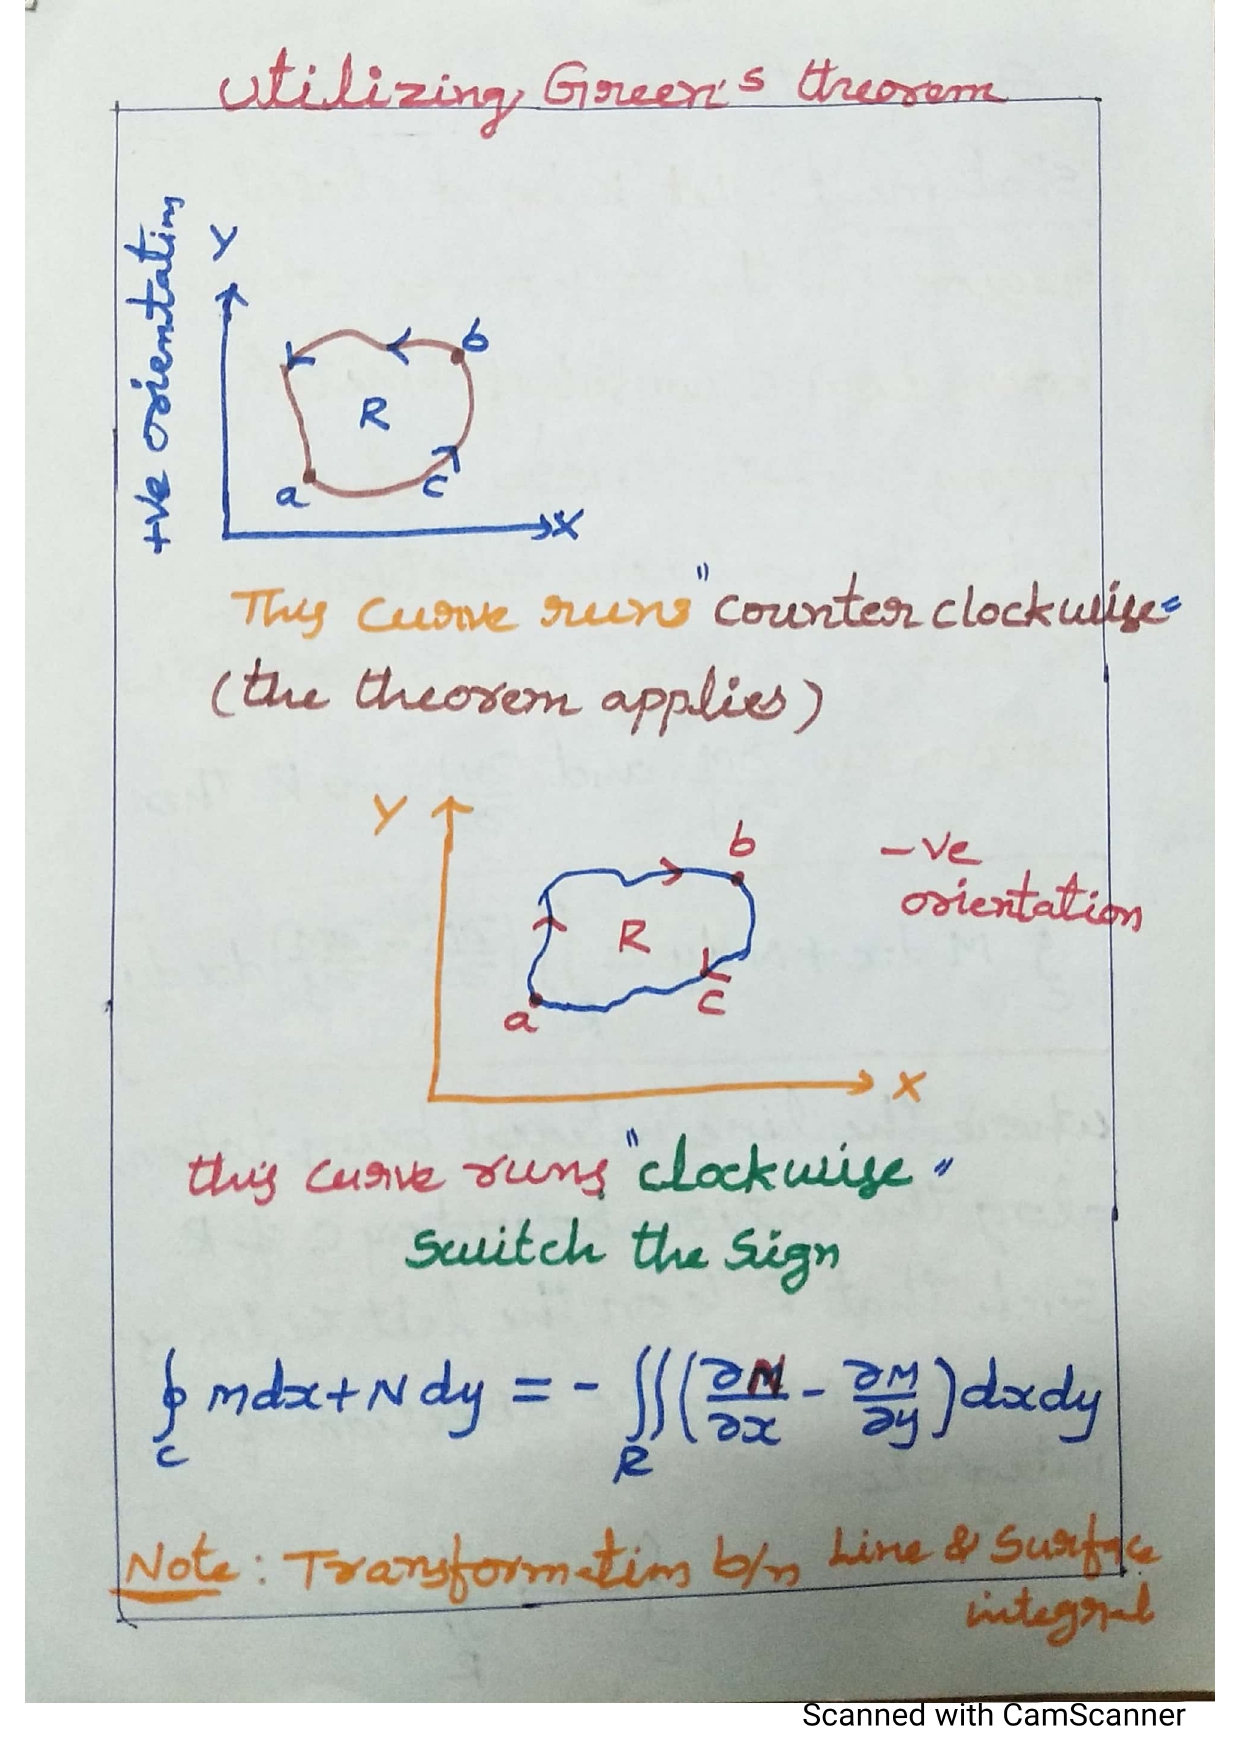 Utilizing Green's theorem
+ve orientation
Y
b
R
a
c
X
This curve runs "counter clockwise"
(the theorem applies)
Y
b
-ve
orientation
R
c
a
X
this curve runs "clockwise"
Switch the Sign
∮_C Mdx + N dy = - ∬_R (∂N/∂x - ∂M/∂y) dxdy
Note: Transformation b/n Line & Surface
integral
Scanned with CamScanner